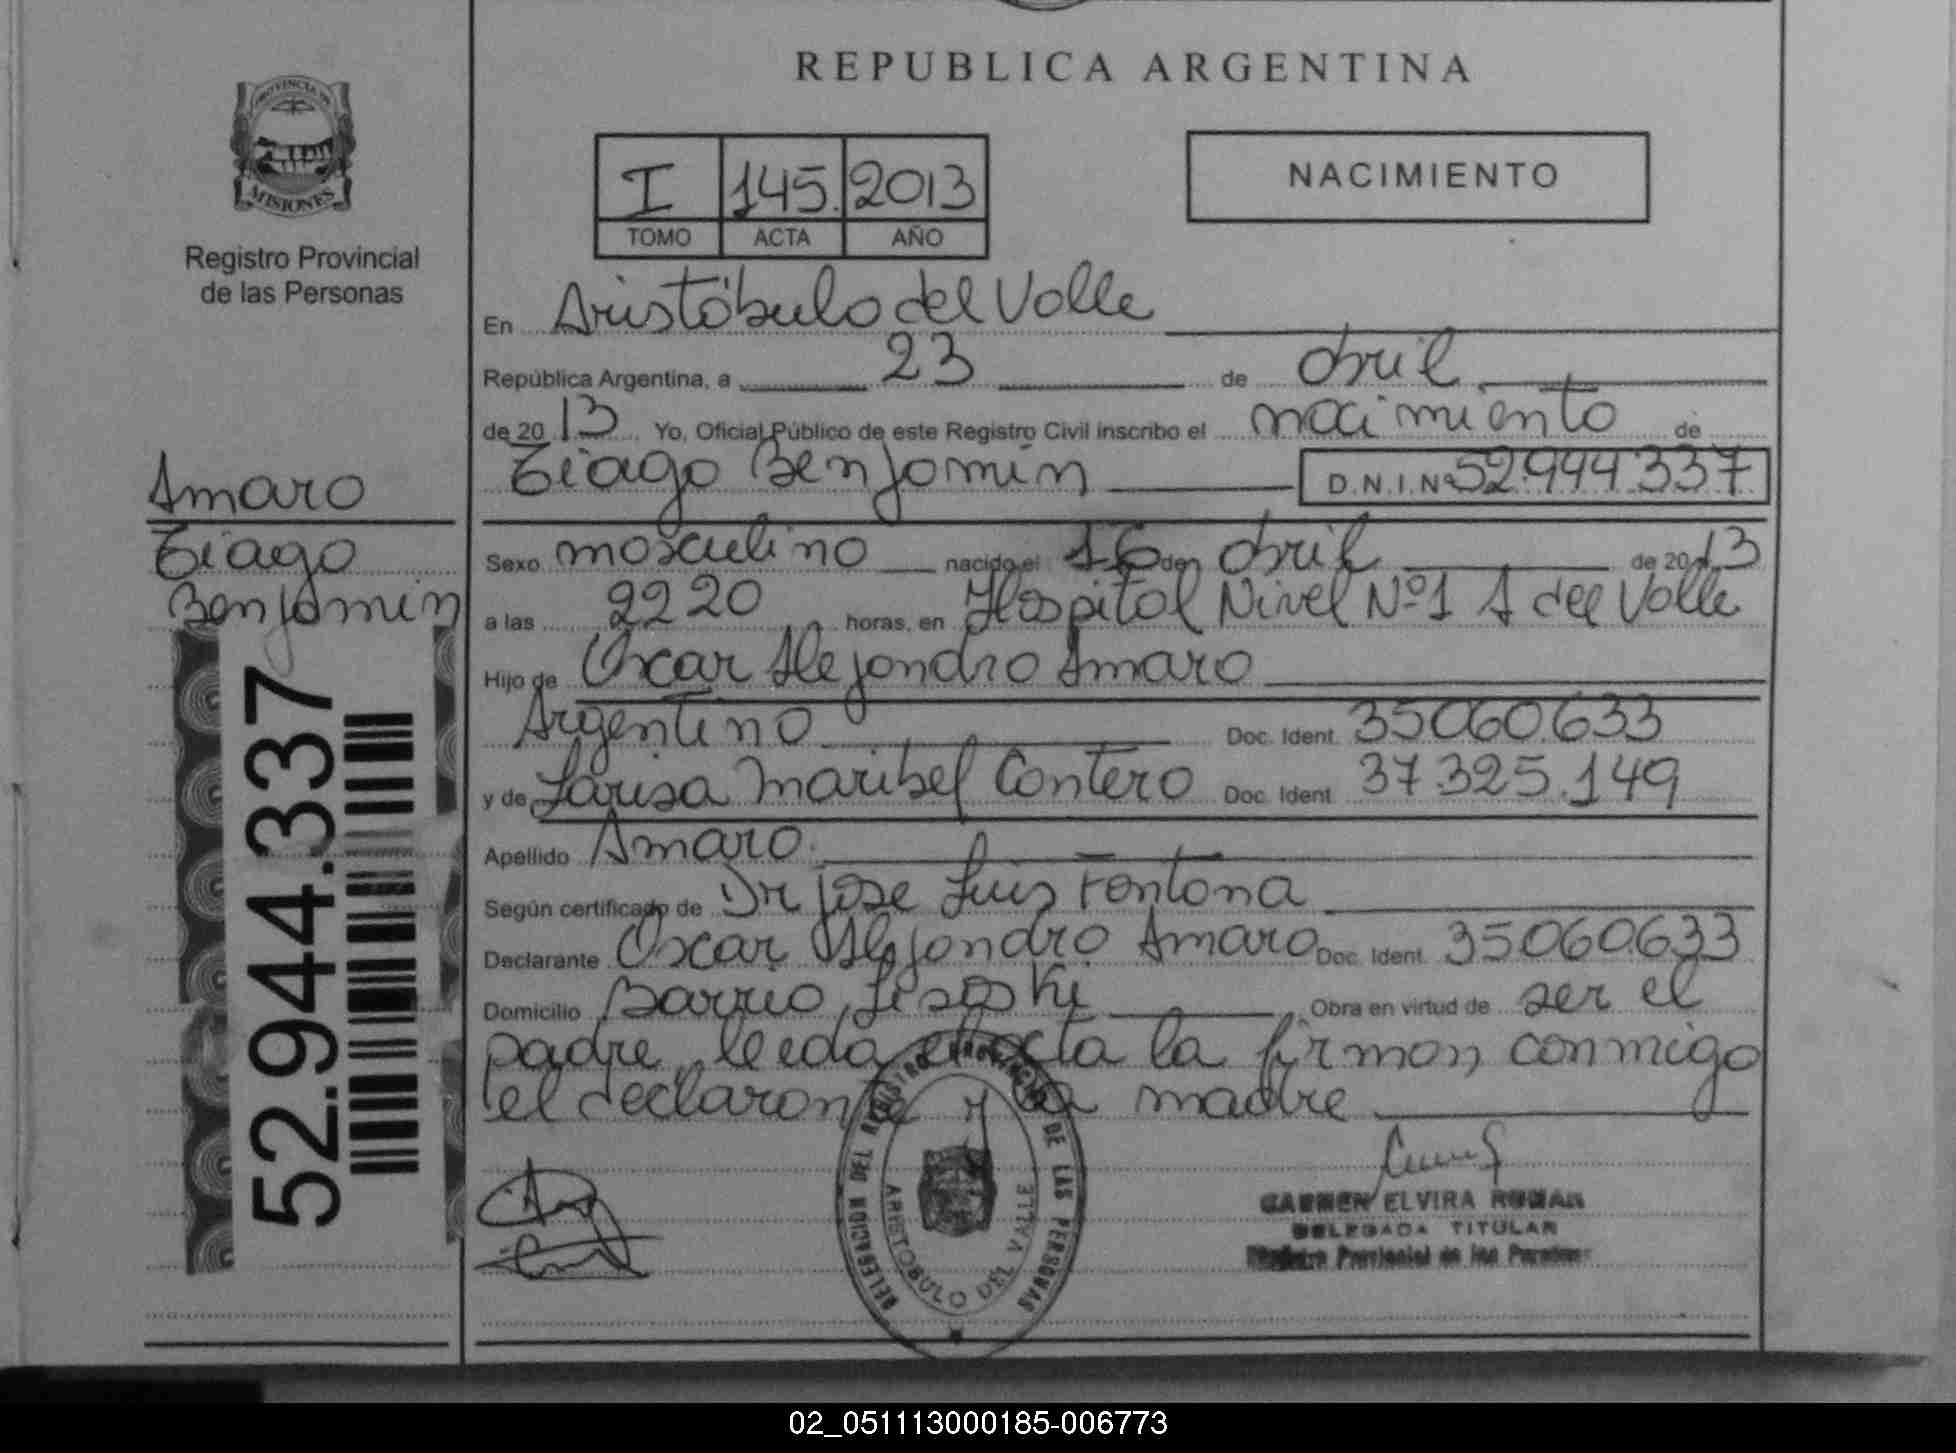 REPUBLICA ARGENTINA
PROVINCIA DE
MISIONES
Registro Provincial
de las Personas
I 145. 2013
TOMO ACTA AÑO
NACIMIENTO
En Aristóbulo del Valle
República Argentina, a 23 de abril
de 2013 Yo, Oficial Público de este Registro Civil inscribo el nacimiento de
Tiago Benjamín D.N.I.Nº 52.944.337
Amaro
Tiago
Benjamín
52.944.337
Sexo masculino nacido el 16 de abril de 2013
a las 22 20 horas, en Hospital Nivel Nº1 A del Valle
Hijo de Oscar Alejandro Amaro
Argentino Doc. Ident. 35060.633
y de Larisa Maribel Contero Doc. Ident. 37.325.149
Apellido Amaro.
Según certificado de Dr Jose Luis Fontana
Declarante Oscar Alejandro Amaro Doc. Ident. 35060.633
Domicilio Barrio Obra en virtud de ser el
padre, leeda el acta la firman conmigo
el declarante y la madre
DELEGACION DEL REGISTRO PROVINCIAL DE LAS PERSONAS
ARISTOBULO DEL VALLE
CARMEN ELVIRA ROMAN
DELEGADA TITULAR
Registro Provincial de las Personas
02_051113000185-006773